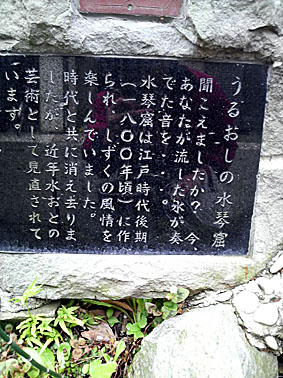 うるおしの水琴窟
聞こえましたか？　今
あなたが流した水が奏
でた音を・・・。
水琴窟は江戸時代後期
（一八〇〇年頃）に作
られ、しずくの風情を
楽しんでいました。
時代と共に消え去りま
したが、近年水おとの
芸術として見直されて
います。